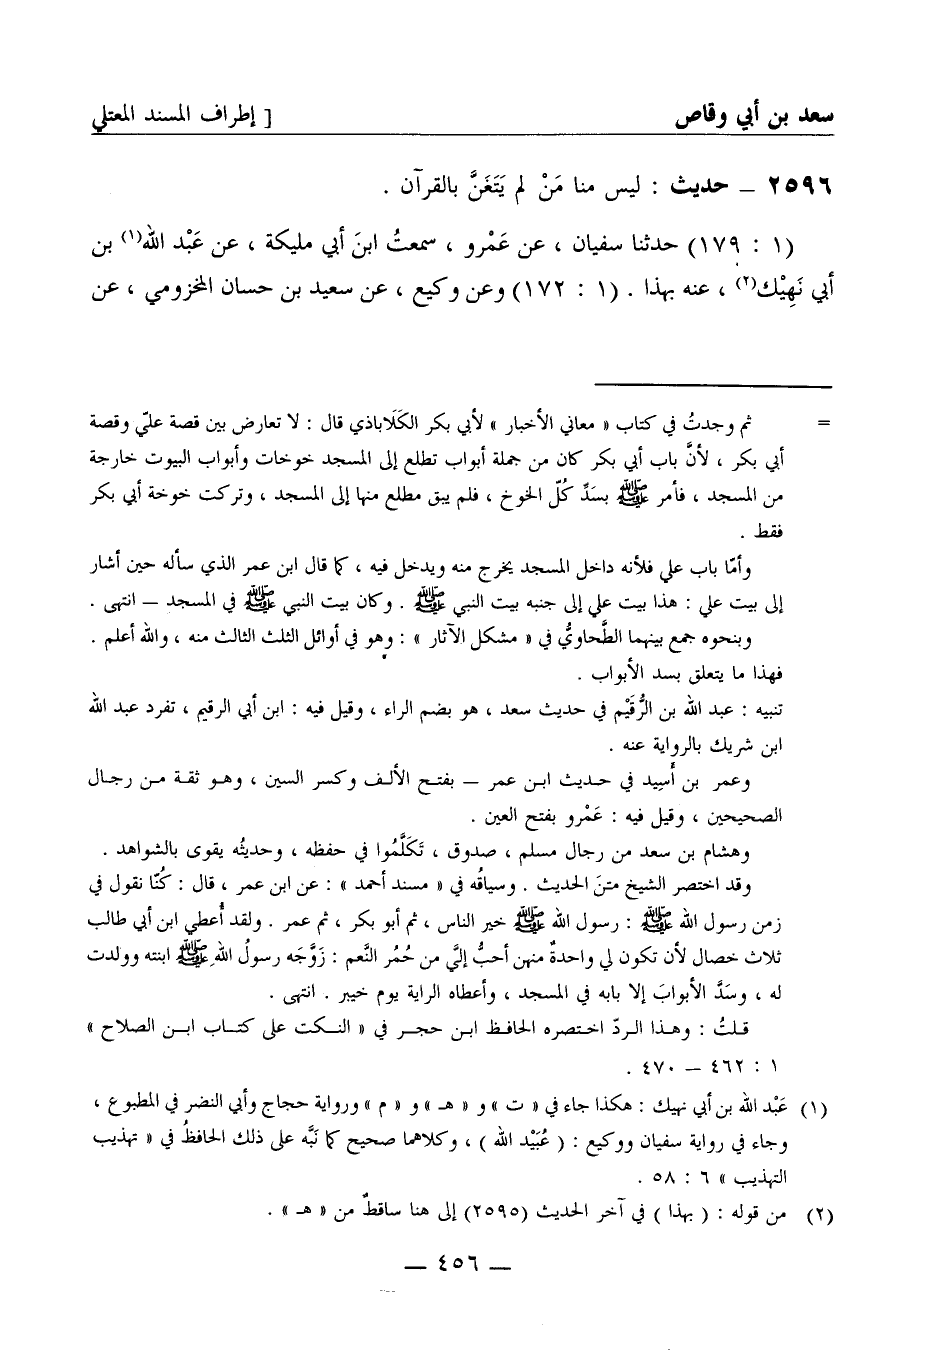 سعد بن أبي وقاص [ إطراف المسند المعتلي
٢٥٩٦ – حديث : ليس منا مَنْ لم يَتَغَنَّ بالقرآن .
(١ : ١٧٩) حدثنا سفيان ، عن عَمْرو ، سمعتُ ابنَ أبي مليكة ، عن عَبْد الله(١) بن
أبي نَهِيْك(٢) ، عنه بهذا . (١ : ١٧٢) وعن وكيع ، عن سعيد بن حسان المخزومي ، عن
= ثم وجدتُ في كتاب « معاني الأخبار » لأبي بكر الكَلَاباذي قال : لا تعارض بين قصة عليّ وقصة
أبي بكر ، لأنَّ باب أبي بكر كان من جملة أبواب تطلع إلى المسجد خوخات وأبواب البيوت خارجة
من المسجد ، فأمر ﷺ بسَدِّ كُلّ الخوخ ، فلم يبق مطلع منها إلى المسجد ، وتركت خوخة أبي بكر
فقط .
وأمّا باب علي فلأنه داخل المسجد يخرج منه ويدخل فيه ، كما قال ابن عمر الذي سأله حين أشار
إلى بيت علي : هذا بيت علي إلى جنبه بيت النبي ﷺ . وكان بيت النبي ﷺ في المسجد – انتهى .
وبنحوه جمع بينهما الطَّحاويُّ في « مشكل الآثار » : وهو في أوائل الثلث الثالث منه ، والله أعلم .
فهذا ما يتعلق بسد الأبواب .
تنبيه : عبد الله بن الرُّقَيْم في حديث سعد ، هو بضم الراء ، وقيل فيه : ابن أبي الرقيم ، تفرد عبد الله
ابن شريك بالرواية عنه .
وعمر بن أَسِيد في حديث ابن عمر – بفتح الألف وكسر السين ، وهو ثقة من رجال
الصحيحين ، وقيل فيه : عَمْرو بفتح العين .
وهشام بن سعد من رجال مسلم ، صدوق ، تَكَلَّمُوا في حفظه ، وحديثُه يقوى بالشواهد .
وقد اختصر الشيخ متنَ الحديث . وسياقُه في « مسند أحمد » : عن ابن عمر ، قال : كُنّا نقول في
زمن رسول الله ﷺ : رسول الله ﷺ خير الناس ، ثم أبو بكر ، ثم عمر . ولقد أُعطي ابن أبي طالب
ثلاث خصال لأن تكون لي واحدةٌ منهن أحبُّ إليَّ من حُمُر النَّعم : زَوَّجَه رسولُ الله ﷺ ابنته وولدت
له ، وسَدَّ الأبوابَ إلا بابه في المسجد ، وأعطاه الراية يوم خيبر . انتهى .
قلتُ : وهذا الردّ اختصره الحافظ ابن حجر في « النكت على كتاب ابن الصلاح »
١ : ٤٦٢ – ٤٧٠ .
(١) عَبْد الله بن أبي نهيك : هكذا جاء في « ت » و « هـ » و « م » ورواية حجاج وأبي النضر في المطبوع ،
وجاء في رواية سفيان ووكيع : ( عُبَيْد الله ) ، وكلاهما صحيح كما نَبَّه على ذلك الحافظُ في « تهذيب
التهذيب » ٦ : ٥٨ .
(٢) من قوله : ( بهذا ) في آخر الحديث (٢٥٩٥) إلى هنا ساقطٌ من « هـ » .
– ٤٥٦ –